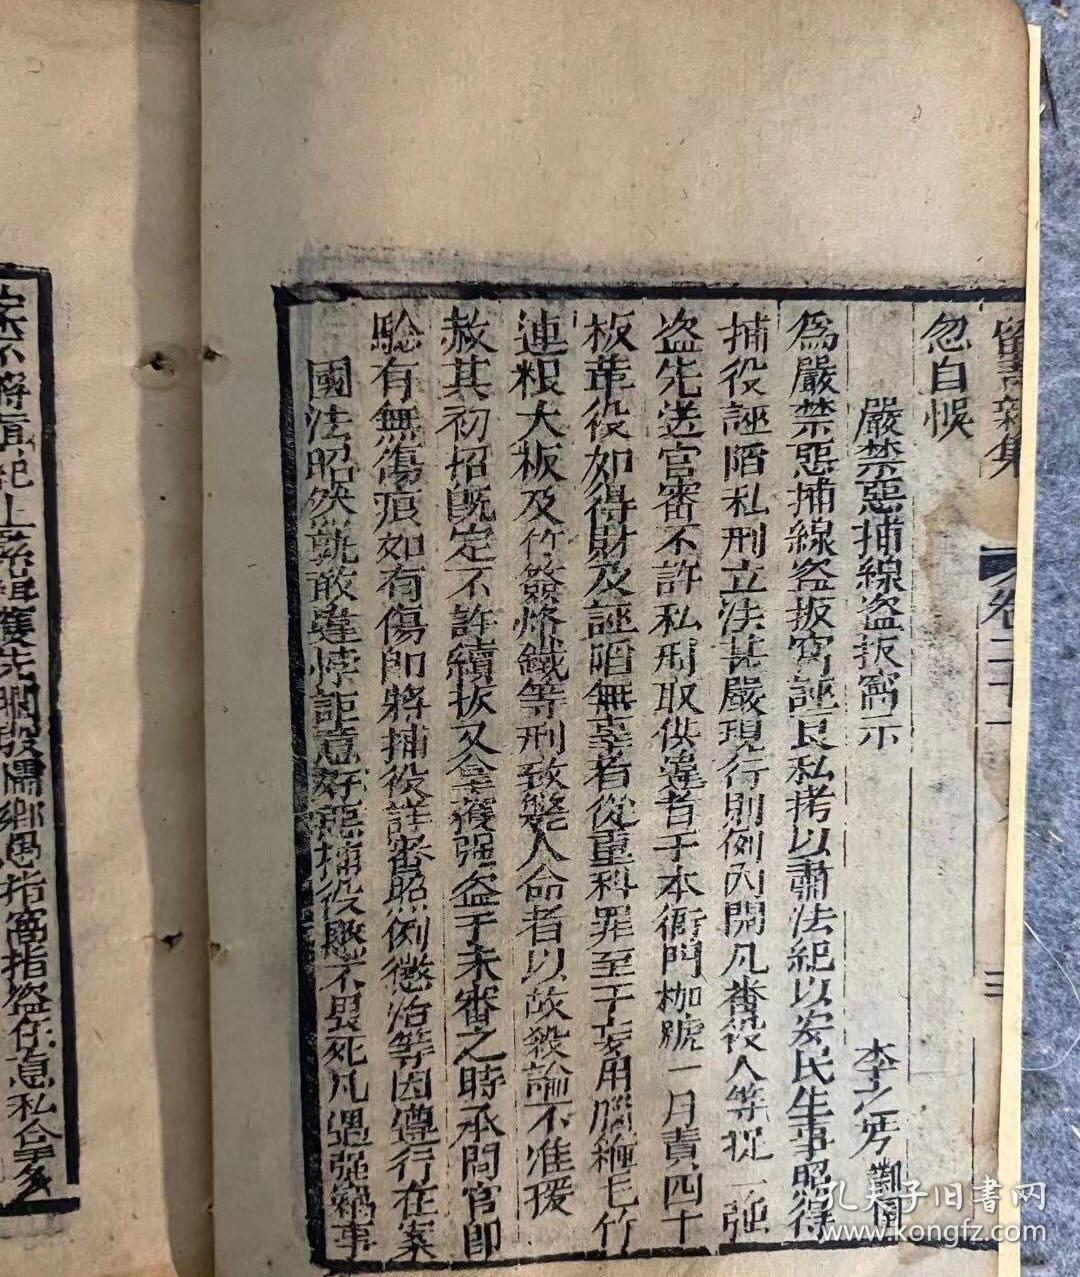 忽自悞
嚴禁惡捕線盜扳窩示 李之芳
為嚴禁惡捕線盜扳窩誣良私拷以肅法紀以安民生事昭得
捕役誣陷私刑立法甚嚴現行則例內開凡番役人等捉一強
盜先送官審不許私刑取供違者于本衙門枷號一月責四十
板革役如得財及誣陷無辜者從重科罪至于妄用腦箍毛竹
連根大板及竹簽烙鐵等刑致斃人命者以故殺論不准援
赦其初招既定不許續扳又拿獲强盜于未審之時承問官即
驗有無傷痕如有傷即將捕役詳審照例懲治等因遵行在案
國法昭然孰敢違悖詎意奸惡捕役愍不畏死凡遇强竊事
不將 緝獲先 鄉愚指窩指盜任意私
卷二十
三
孔夫子旧书网
www.kongfz.com